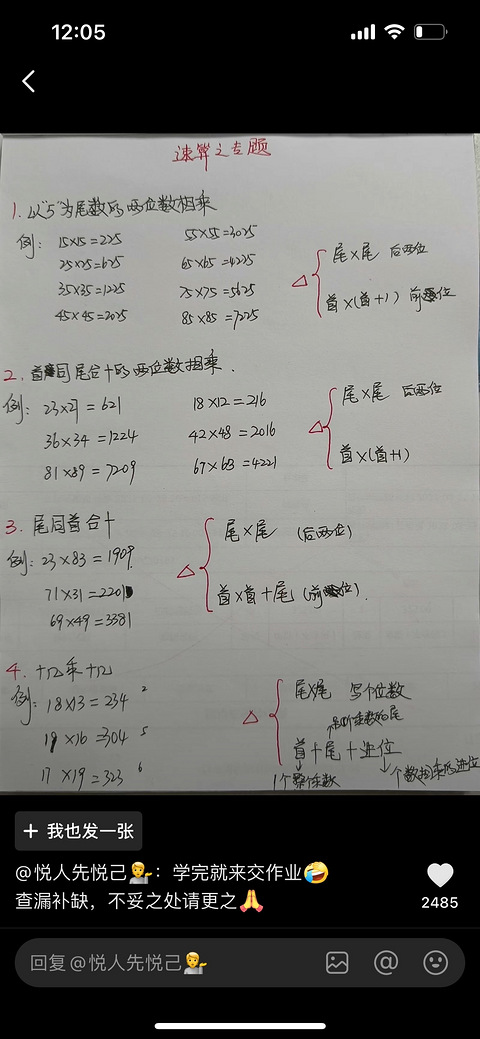 12:05
速算之专题
1. 以"5"为尾数的两位数相乘
例: 15×15=225 55×55=3025
25×25=625 65×65=4225
35×35=1225 75×75=5625
45×45=2025 85×85=7225
△ 尾×尾 后两位
首×(首+1) 前 位
2. 首同尾合十的两位数相乘.
例: 23×27=621 18×12=216
36×34=1224 42×48=2016
81×89=7209 67×63=4221
△ 尾×尾 后两位
首×(首+1)
3. 尾同首合十
例: 23×83=1909.
71×31=2201
69×49=3381
△ 尾×尾 (后两位)
首×首+尾 (前 位).
4. 十几乘十几
例: 18×13=234 2
19×16=304 5
17×19=323 6
△ 尾×尾 写个位数
乘数的尾
首+尾+进位
1个整乘数 个数相乘的进位
+ 我也发一张
@悦人先悦己💁: 学完就来交作业🤣
查漏补缺，不妥之处请更之🙏
2485
回复@悦人先悦己💁